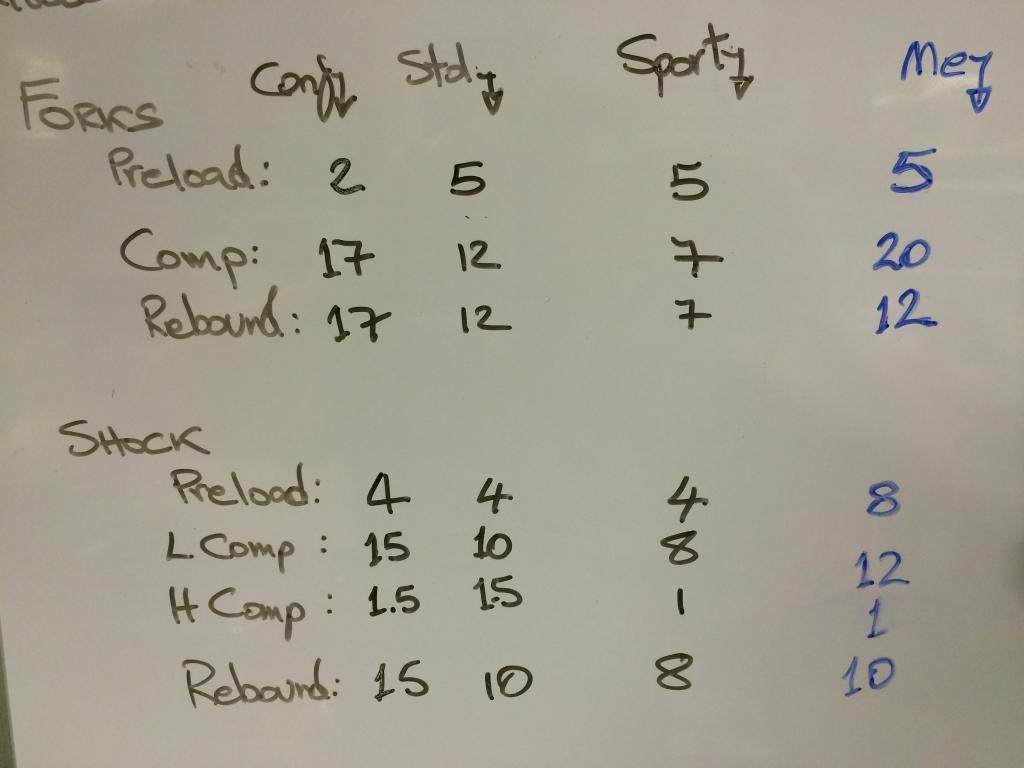 Comfy Std. Sporty Mey
FORKS
Preload: 2 5 5 5
Comp: 17 12 7 20
Rebound: 17 12 7 12
SHOCK
Preload: 4 4 4 8
L Comp : 15 10 8 12
H Comp : 1.5 1.5 1 1
Rebound: 15 10 8 10